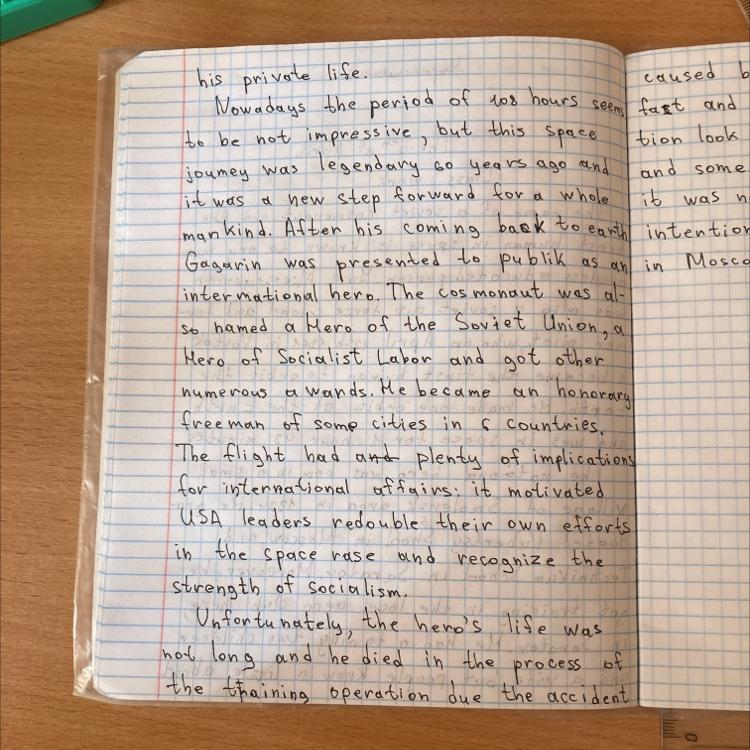 his private life.
Nowadays the period of 108 hours seems
to be not impressive, but this space
journey was legendary 60 years ago and
it was a new step forward for a whole
mankind. After his coming back to earth
Gagarin was presented to publik as an
international hero. The cosmonaut was al-
so named a Hero of the Soviet Union, a
Hero of Socialist Labor and got other
numerous awards. He became an honorary
freeman of some cities in 6 countries.
The flight had and plenty of implications
for international affairs: it motivated
USA leaders redouble their own efforts
in the space rase and recognize the
strength of socialism.
Unfortunately, the hero's life was
not long and he died in the process of
the training operation due the accident
caused b
fast and
tion look
and some
it was n
intention
in Mosco